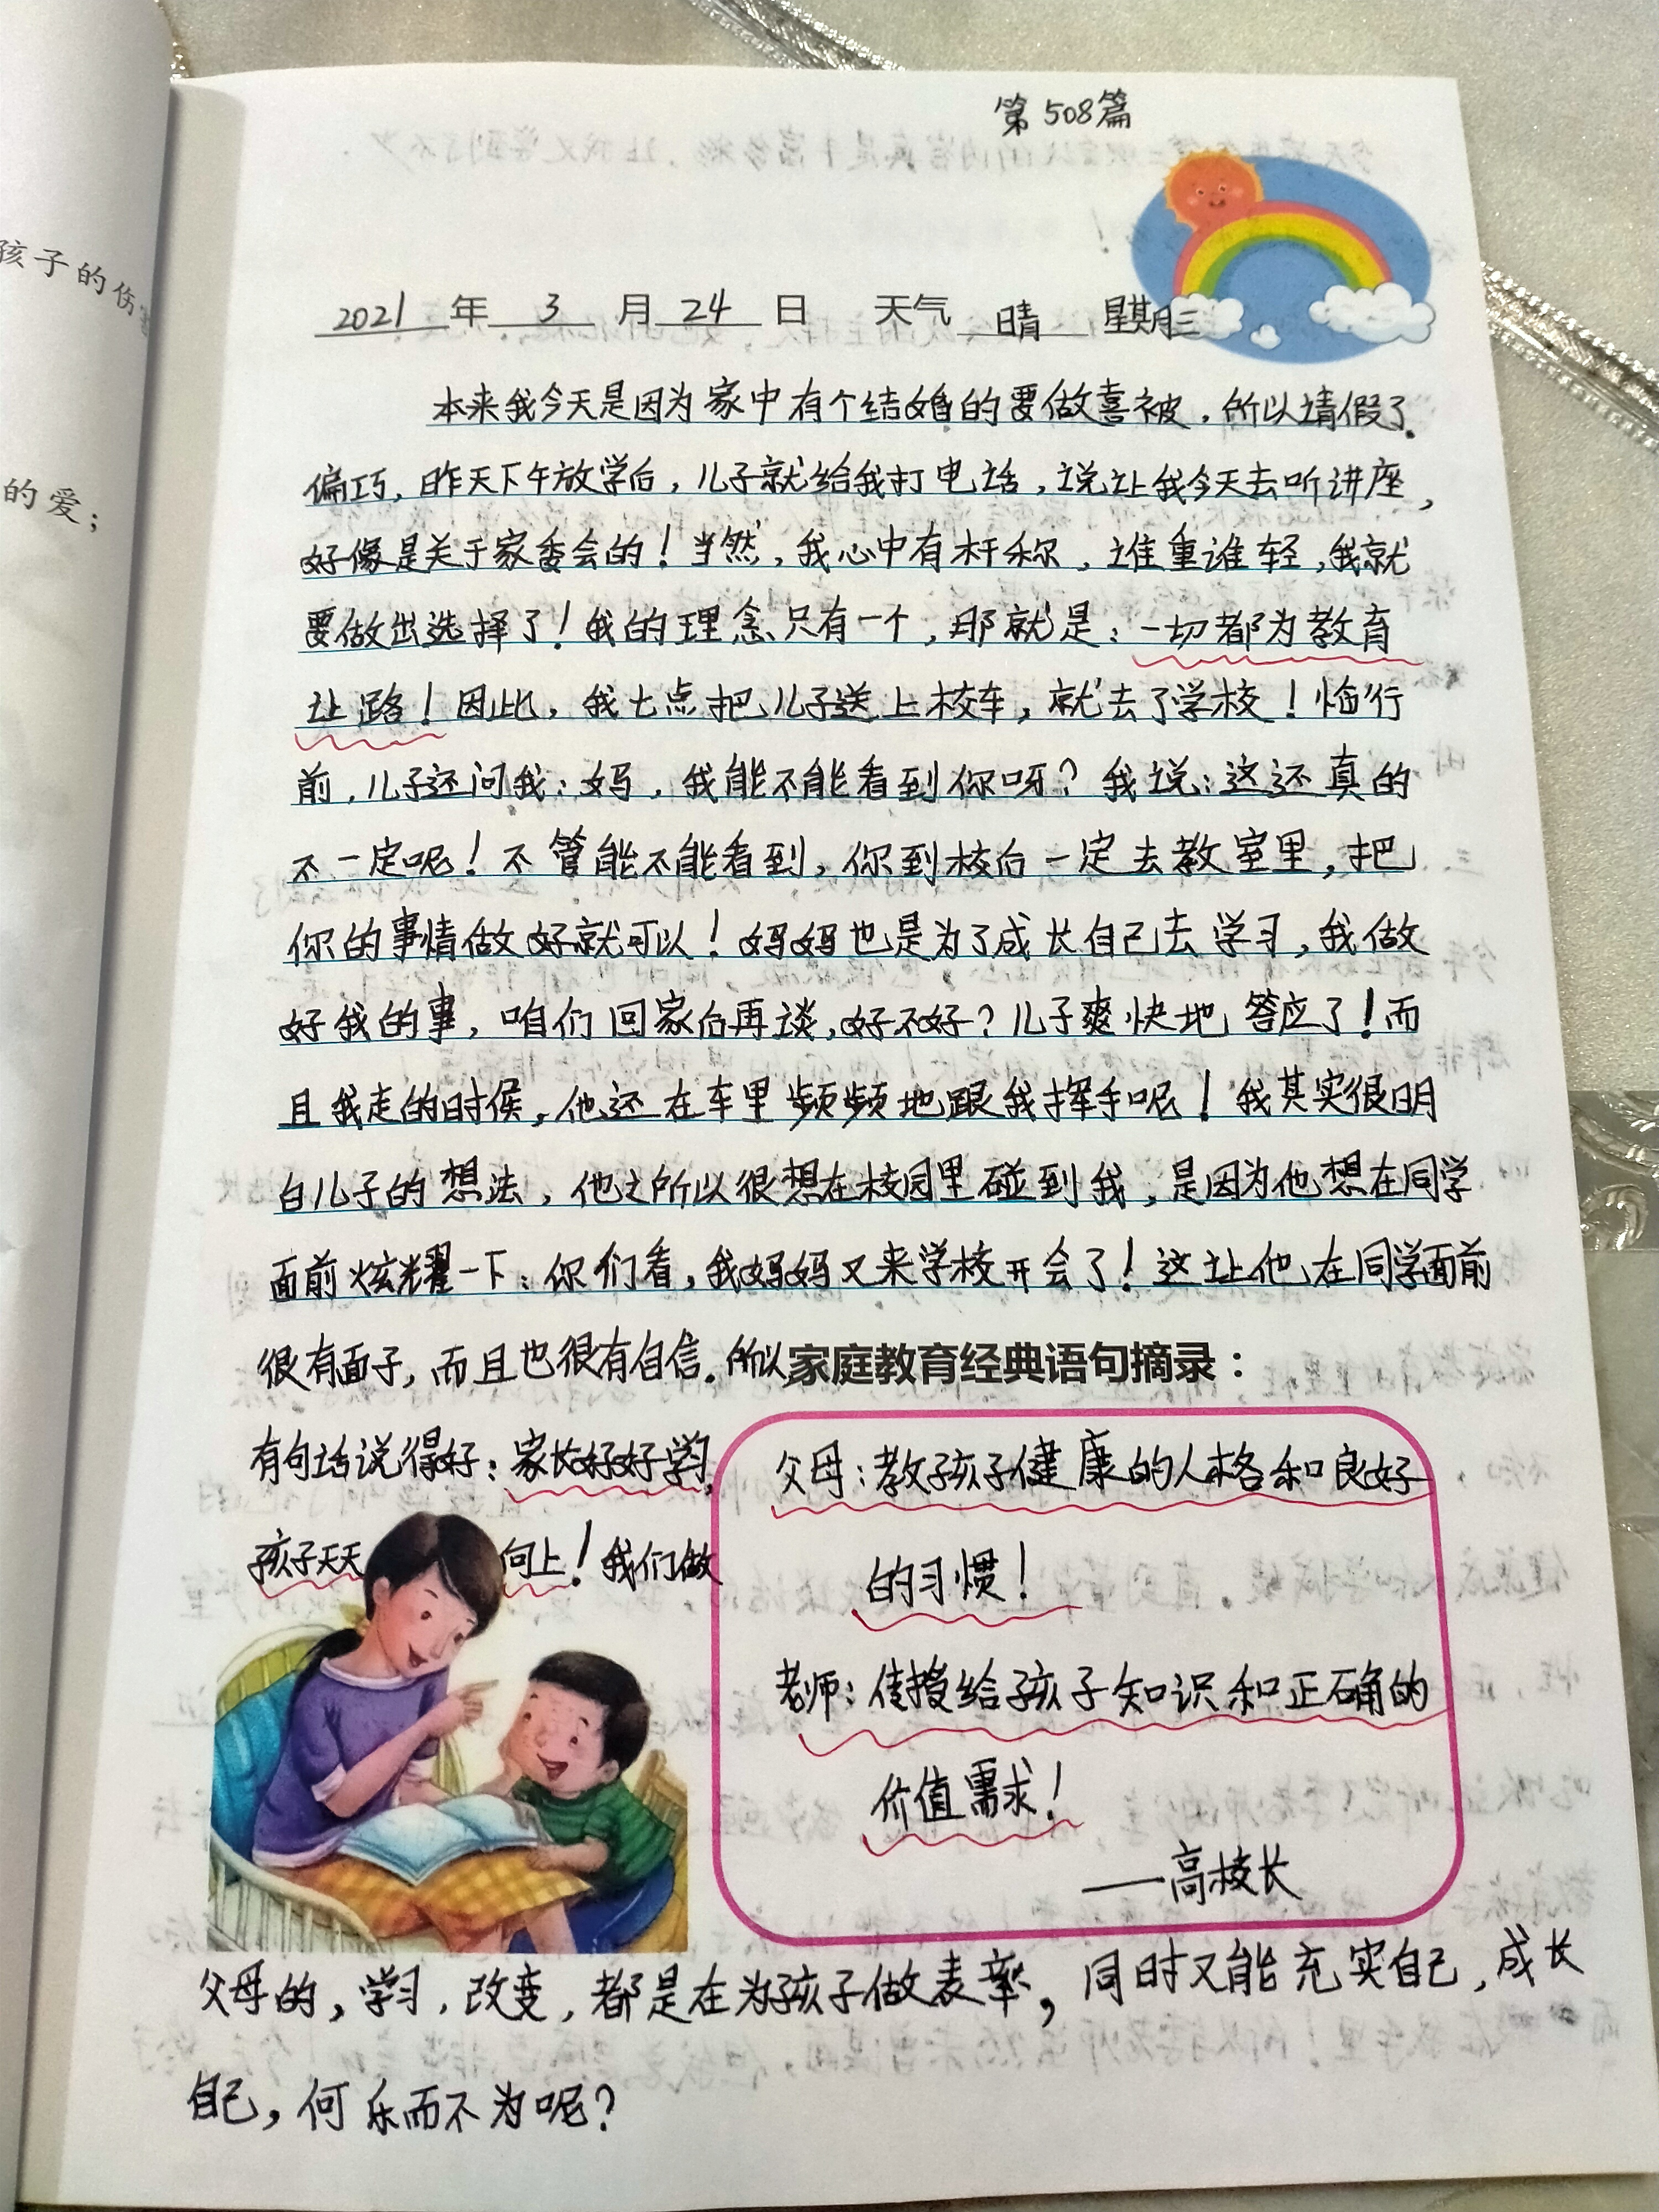 孩子的伤害
的爱；
第508篇
2021年3月24日 天气 晴 星期三
本来我今天是因为家中有个结婚的要做喜被，所以请假了。
偏巧，昨天下午放学后，儿子就给我打电话，说让我今天去听讲座，
好像是关于家委会的！当然，我心中有杆称，谁重谁轻，我就
要做出选择了！我的理念只有一个，那就是：一切都为教育
让路！因此，我七点把儿子送上校车，就去了学校！临行
前，儿子还问我：妈，我能不能看到你呀？我说：这还真的
不一定呢！不管能不能看到，你到校后一定去教室里，把
你的事情做好就可以！妈妈也是为了成长自己去学习，我做
好我的事，咱们回家后再谈，好不好？儿子爽快地答应了！而
且我走的时候，他还在车里频频地跟我挥手呢！我其实很明
白儿子的想法，他之所以很想在校园里碰到我，是因为他想在同学
面前炫耀一下：你们看，我妈妈又来学校开会了！这让他在同学面前
很有面子，而且也很有自信。所以
有句话说得好：家长好好学习，
孩子天天向上！我们做
家庭教育经典语句摘录：
父母：教孩子健康的人格和良好
的习惯！
老师：传授给孩子知识和正确的
价值需求！
——高校长
父母的，学习，改变，都是在为孩子做表率，同时又能充实自己，成长
自己，何乐而不为呢？